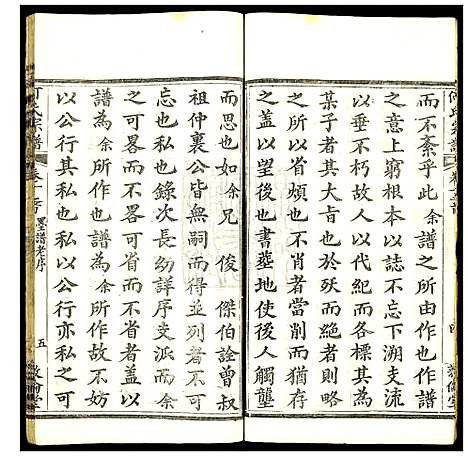 而不紊乎此余譜之所由作也作譜
之意上窮根本以誌不忘下溯支流
以垂不朽故人以代紀而各標其為
某子者其大旨也至於殀而絶者則
之所以省煩也不肖者當削而猶存
之蓋以望後也書塟地使後人觸壟
而思也如余兄俊傑伯詮曾叔
祖仲裏公皆無嗣而得並列者不可
忘也私也錄次長幼詳序支派而余
可畧而不畧可省而不省者蓋以
譜為余所作也譜為余所作故不妨
以公行其私也私以公行亦私之可
何氏宗譜
卷一
墨譜老序
五